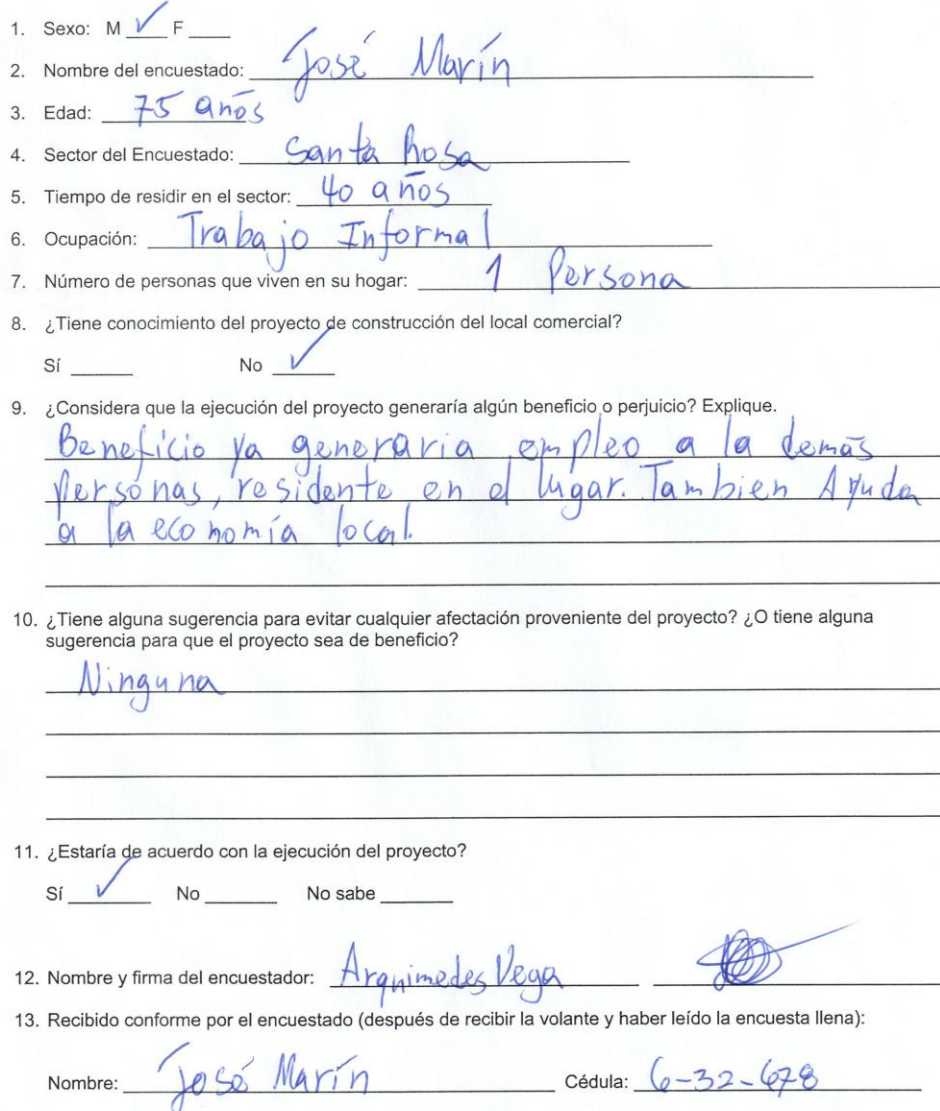 1. Sexo: M ✓ F ____
2. Nombre del encuestado: José Marín
3. Edad: 75 años
4. Sector del Encuestado: Santa Rosa
5. Tiempo de residir en el sector: 40 años
6. Ocupación: Trabajo Informal
7. Número de personas que viven en su hogar: 1 Persona
8. ¿Tiene conocimiento del proyecto de construcción del local comercial?
Sí ____ No ✓
9. ¿Considera que la ejecución del proyecto generaría algún beneficio o perjuicio? Explique.
Beneficio ya generaria empleo a la demás
personas, residente en el lugar. Tambien Ayuda
a la economía local.
10. ¿Tiene alguna sugerencia para evitar cualquier afectación proveniente del proyecto? ¿O tiene alguna
sugerencia para que el proyecto sea de beneficio?
Ninguna
11. ¿Estaría de acuerdo con la ejecución del proyecto?
Sí ✓ No ____ No sabe ____
12. Nombre y firma del encuestador: Arquimedes Vega
13. Recibido conforme por el encuestado (después de recibir la volante y haber leído la encuesta llena):
Nombre: José Marín Cédula: 6-32-678